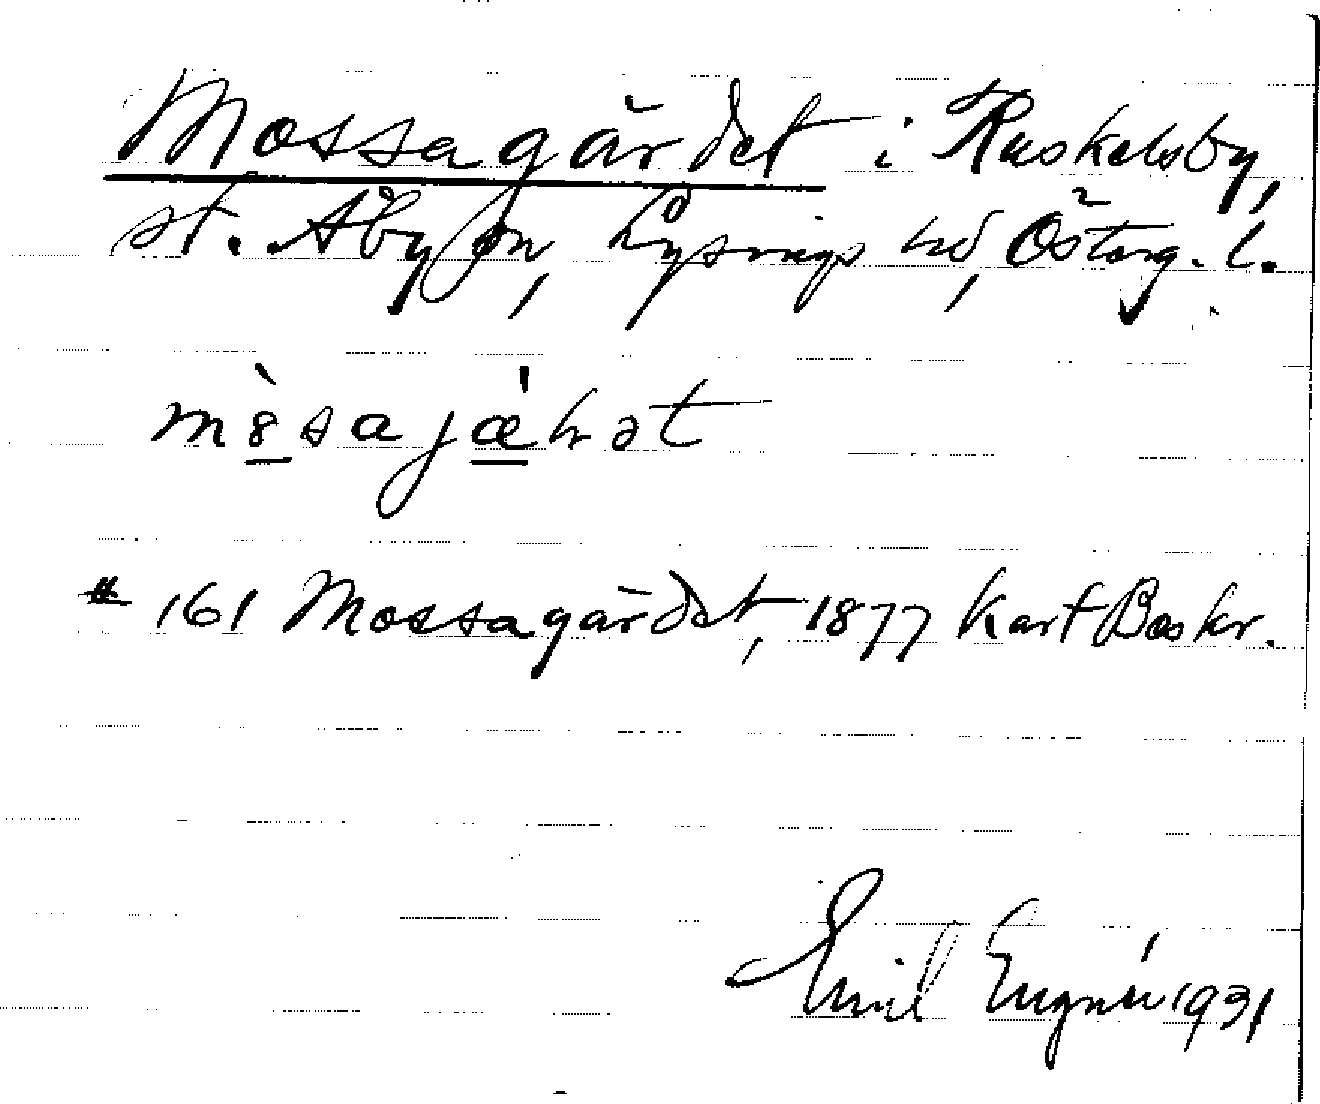 Mossagärdet i Ruskelsby,
st. Åby sn, Lysings hd, Österg. l.
mòsajæ̀rət
# 161 Mossagärdet, 1877 Kart Beskr.
Emil Eugnér 1931